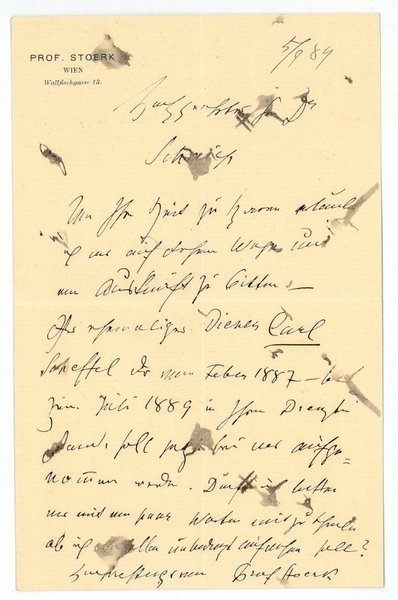 PROF. STOERK
WIEN
Wallfischgasse 13.
5/9 89
Hochgeehrter H Dr
Um Ihre Zeit zu
ich mir auf diesem Wege
um Auskunft zu bitten –
Ihr ehemaliger Diener Carl
Scheffel der von Feber 1887 – bis
zum Juli 1889 in Ihren Diensten
stand, soll jetzt bei mir aufge-
nommen werden. Dürft ich bitten
mir mit ein paar Worten mitzutheilen
ob ich unbedingt aufnehmen soll?
Hochachtungsvoll Prof Stoerk